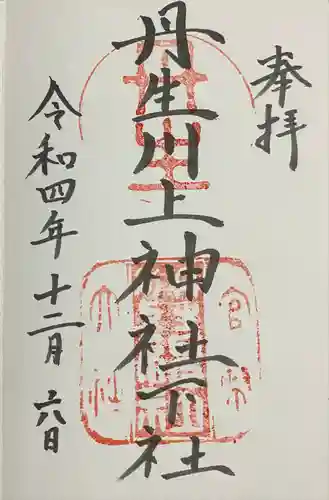 奉拝
丹生川上神社下社
令和四年十二月六日